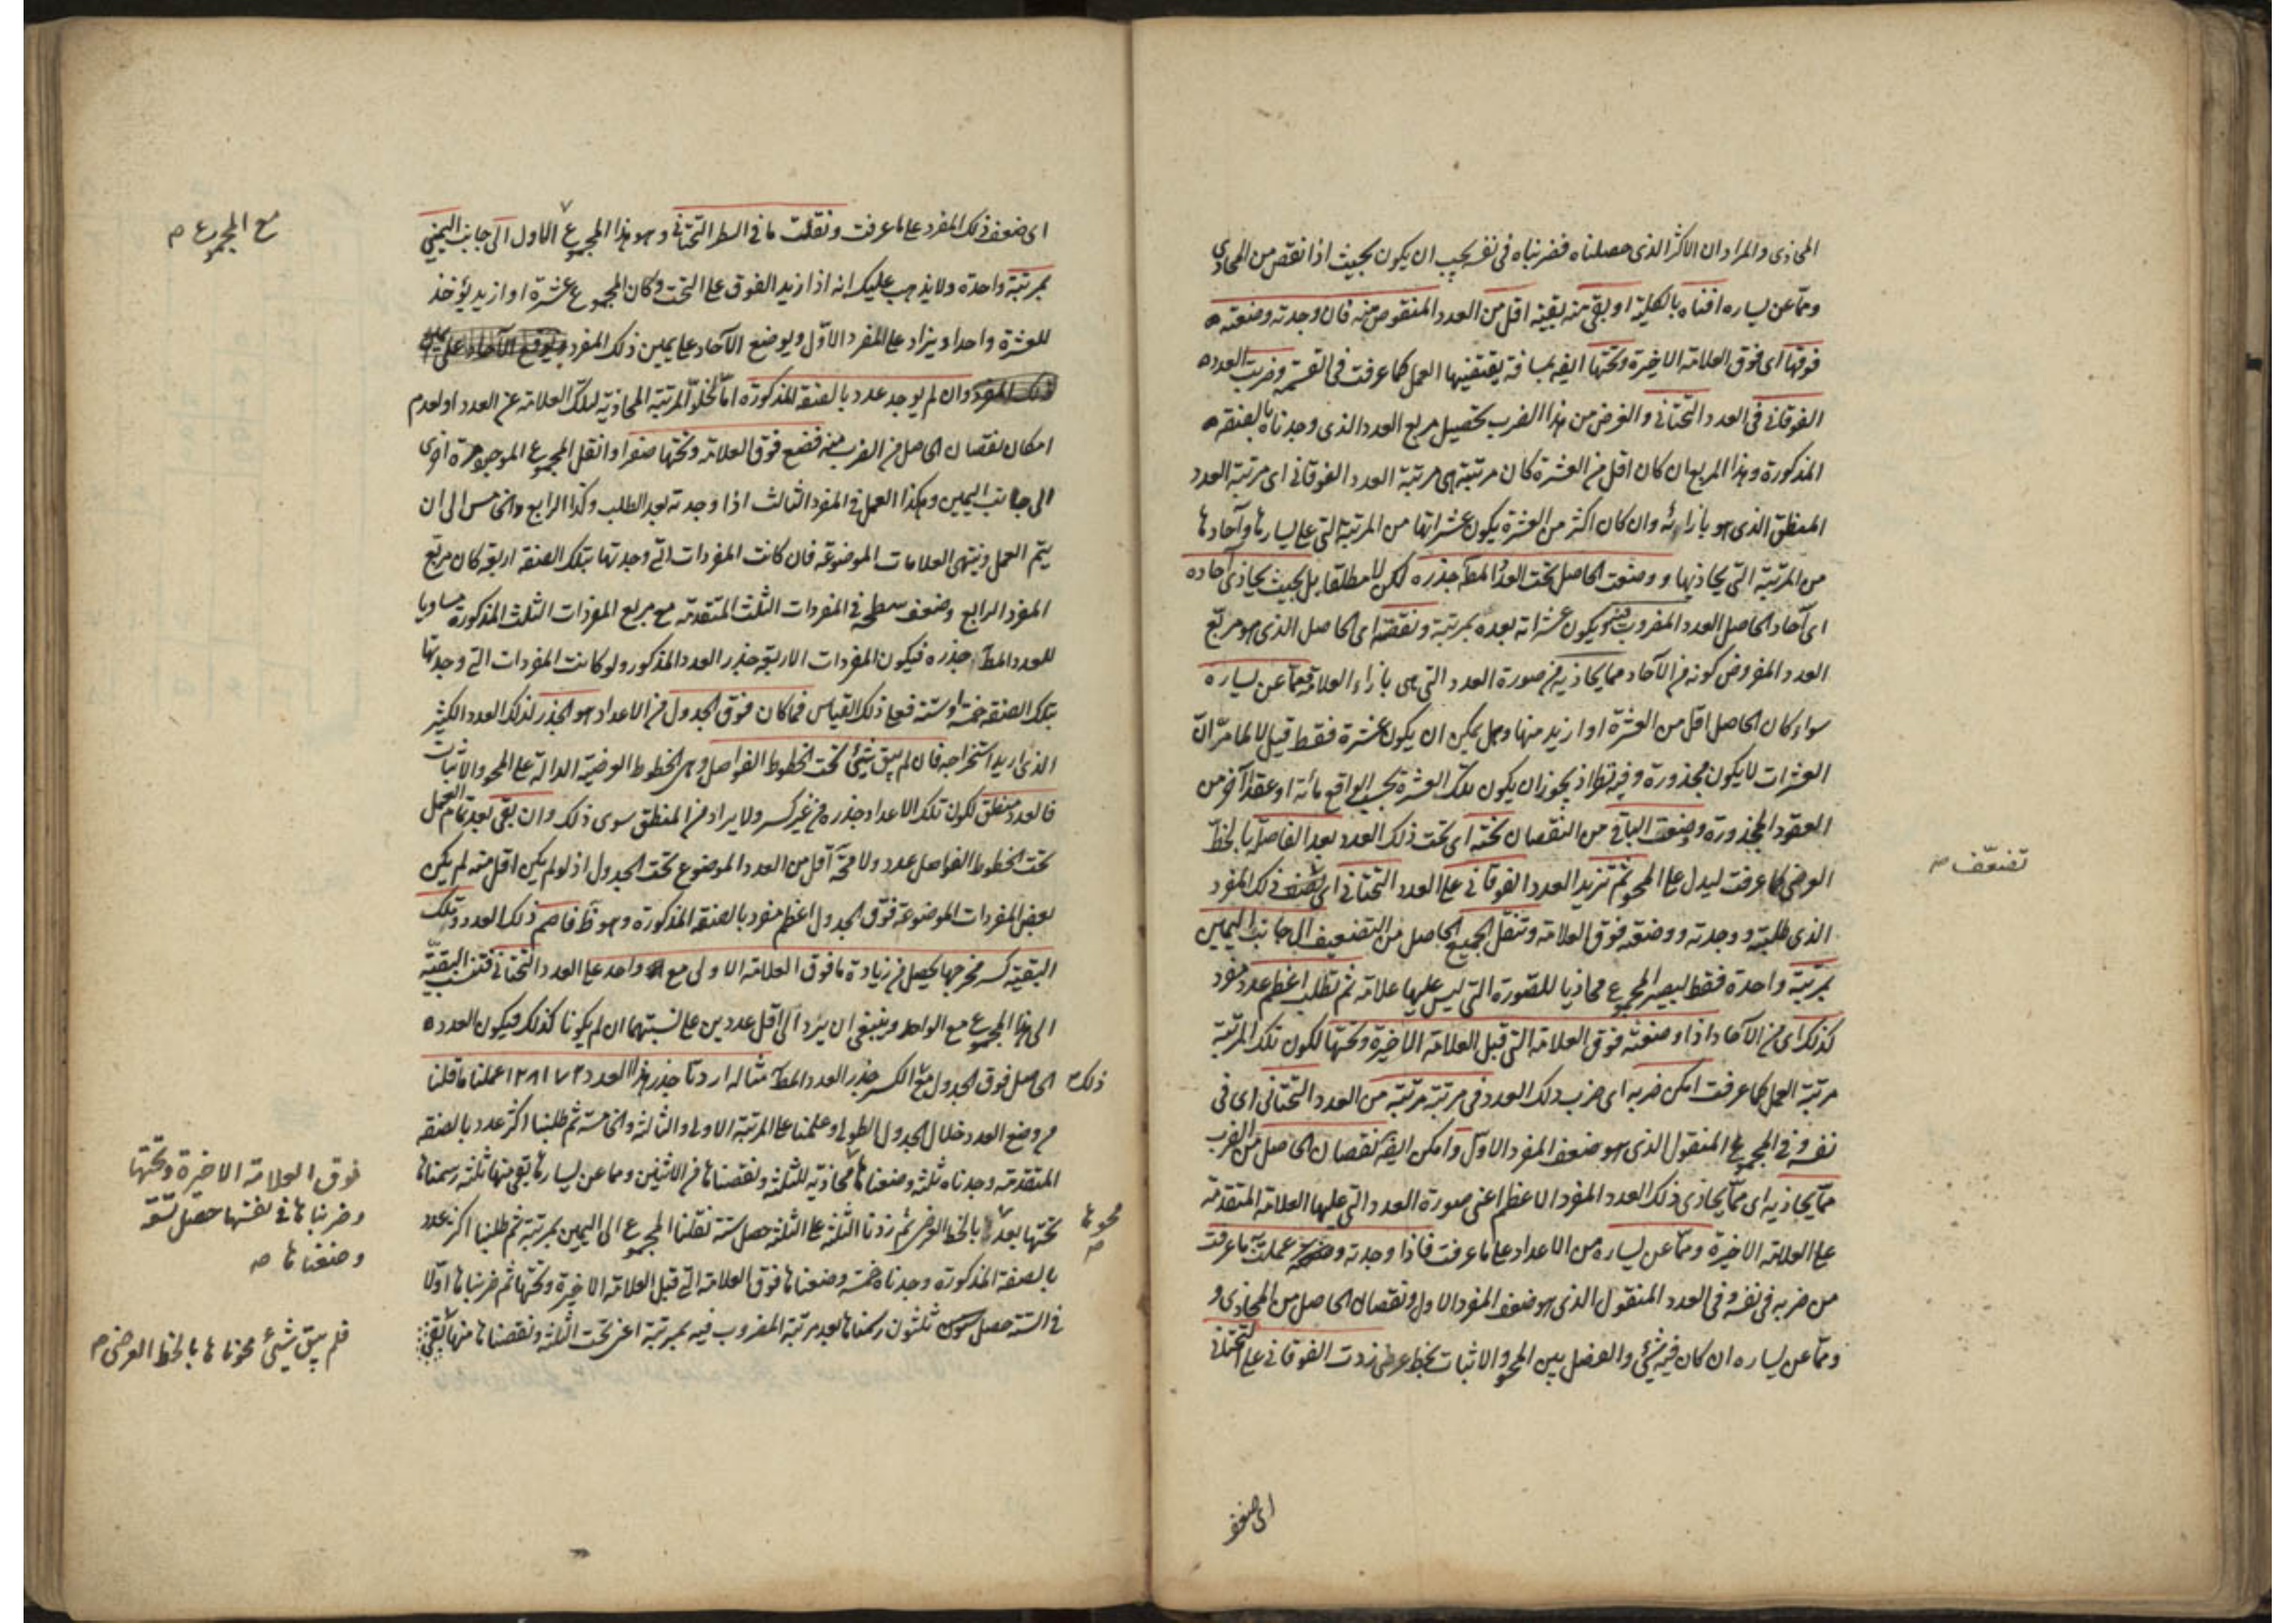 المحاذى والمراد ان الاكثر الذى حصلناه فضربناه فى نفسه يجب ان يكون بحيث اذا نقص من المحاذى
ومما عن يساره افناه بالكلية او بقى منه بقية اقل من العدد المنقوص منه فان وجدته وضعته
فوقها اى فوق العلامة الاخيرة وتحتها ايضا بمسافة يقتضيها العمل كما عرفت فى القسمة وضربت العدد
الفوقانى فى العدد التحتانى والغرض من هذا الضرب تحصيل مربع العدد الذى وجدناه بالصفة
المذكورة وهذا المربع ان كان اقل من العشرة كان مرتبته هى مرتبة العدد الفوقانى اى مرتبة العدد
المنطق الذى هو بازائه وان كان اكثر من العشرة يكون عشراتها من المرتبة التى على يسارها وآحادها
من المرتبة التى يحاذيها ووضعت الحاصل تحت العدد المط جذره لكن لا مطلقا بل بحيث يحاذى آحاده
اى آحاد الحاصل العدد المضروب فيه ويكون عشراته بعده بمرتبة ونقصته اى الحاصل الذى هو مربع
العدد المفروض كونه من الآحاد مما يحاذيه من صورة العدد التى هى بازاء العلامة ومما عن يساره
سواء كان الحاصل اقل من العشرة او ازيد منها وهل يمكن ان يكون عشرة فقط قيل لا لما مر ان
العشرات لا يكون مجذورة وفيه نظر اذ يجوز ان يكون تلك العشرة بحسب الواقع مائة او عقدا آخر من
العقود المجذورة ووضعت الباقى من النقصان تحته اى تحت ذلك العدد بعد الفاصلة بالخط
العرضى كما عرفت ليدل على المحو ثم تزيد العدد الفوقانى على العدد التحتانى اى تضعف ذلك المفرد
تضعّف صح
الذى طلبته ووجدته ووضعته فوق العلامة وتنقل الجميع الحاصل من التضعيف الى جانب اليمين
بمرتبة واحدة فقط ليصير المجموع محاذيا للصورة التى ليس عليها علامة ثم تطلب اعظم عدد مفرد
كذلك اى من الآحاد اذا وضعته فوق العلامة التى قبل العلامة الاخيرة وتحتها لكون تلك المرتبة
مرتبة العمل كما عرفت امكن ضربه اى ضرب ذلك العدد فى مرتبة مرتبة من العدد التحتانى اى فى
نفسه وفى المجموع المنقول الذى هو ضعف المفرد الاول وامكن ايضا نقصان الحاصل من الضرب
مما يحاذيه اى مما يحاذى ذلك العدد المفرد الاعظم اعنى صورة العدد التى عليها العلامة المتقدمة
على العلامة الاخيرة ومما عن يساره من الاعداد على ما عرفت فاذا وجدته وعملت به ما عرفت
من ضربه فى نفسه وفى العدد المنقول الذى هو ضعف المفرد الاول ونقصان الحاصل من المحاذى و
ومما عن يساره ان كان فيه شئ والفصل بين المحو والاثبات بخط عرضى زدت الفوقانى على التحتانى
اى ضعف
اى ضعف ذلك المفرد على ما عرفت ونقلت ما فى السطر التحتانى وهو هذا المجموع الاول الى جانب اليمنى
مع المجموع م
بمرتبة واحدة ولا يذهب عليك انه اذا زيد الفوق على التحت وكان المجموع عشرة او ازيد يؤخذ
للعشرة واحدا ويزاد على المفرد الاول ويوضع الآحاد على يمين ذلك المفرد
وان لم يوجد عدد بالصفة المذكورة اما لخلو المرتبة المحاذية لتلك العلامة عن العدد او لعدم
امكان نقصان الحاصل من الضرب منه فضع فوق العلامة وتحتها صفرا وانقل المجموع الموجود مرة اخرى
الى جانب اليمين وهكذا العمل فى المفرد الثالث اذا وجدته بعد الطلب وكذا الرابع والخامس الى ان
يتم العمل وينتهى العلامات الموضوعة فان كانت المفردات التى وجدتها بتلك الصفة اربعة كان مربع
المفرد الرابع وضعف سطحه فى المفردات الثلث المتقدمة مع مربع المفردات الثلث المذكورة مساويا
للعدد المط جذره فيكون المفردات الاربعة جذر العدد المذكور ولو كانت المفردات التى وجدتها
بتلك الصفة خمسة او ستة فعلى ذلك القياس فما كان فوق الجدول من الاعداد هو الجذر لذلك العدد الكثير
الذى اريد استخراجه فان لم يبق شئ تحت الخطوط الفواصل وهى الخطوط العرضية الدالة على المحو والاثبات
فالعدد منطق لكون تلك الاعداد جذره من غير كسر ولا يراد من المنطق سوى ذلك وان بقى بعد تمام العمل
تحت الخطوط الفواصل عدد ولا محة اقل من العدد الموضوع تحت الجدول اذ لو لم يكن اقل منه لم يكن
بعض المفردات الموضوعة فوق الجدول اعظم مفرد بالصفة المذكورة وهو ظ فاصم ذلك العدد وتلك
البقية كسر مخرجها يحصل من زيادة ما فوق العلامة الاولى مع واحد على العدد التحتانى فتنسب البقية
الى هذا المجموع مع الواحد وينبغى ان يرد الى اقل عددين على نسبتهما ان لم يكونا كذلك فيكون العدد
الحاصل فوق الجدول مع الكسر جذر العدد المط مثاله اردنا جذر هذا العدد ١٢٨١٧٣ عملنا ما قلنا
ذلك
من وضع العدد خلال الجدول الطولى وعلمنا على المرتبة الاولى والثالثة والخامسة ثم طلبنا اكثر عدد بالصفة
المتقدمة وجدناه ثلثة وضعناها محاذية للثلثة ونقصناها من الاثنين ومما عن يسارها بقى منها ثلثة رسمناها
فوق العلامة الاخيرة وتحتها
وضربناها فى نفسها حصل تسعة
وضعناها صح
تحتها بعد بالخط العرضى ثم زدنا الثلثة على الثلثة حصل ستة نقلنا المجموع الى اليمين بمرتبة ثم طلبنا اكثر عدد
محوها
بالصفة المذكورة وجدناه خمسة وضعناها فوق العلامة التى قبل العلامة الاخيرة وتحتها ثم ضربناها اولا
فى الستة حصل ثلثون رسمناها بعد مرتبة المضروب فيه بمرتبة اعنى تحت الثلثة ونقصناها منها
فلم يبق شئ محوناها بالخط العرضى م